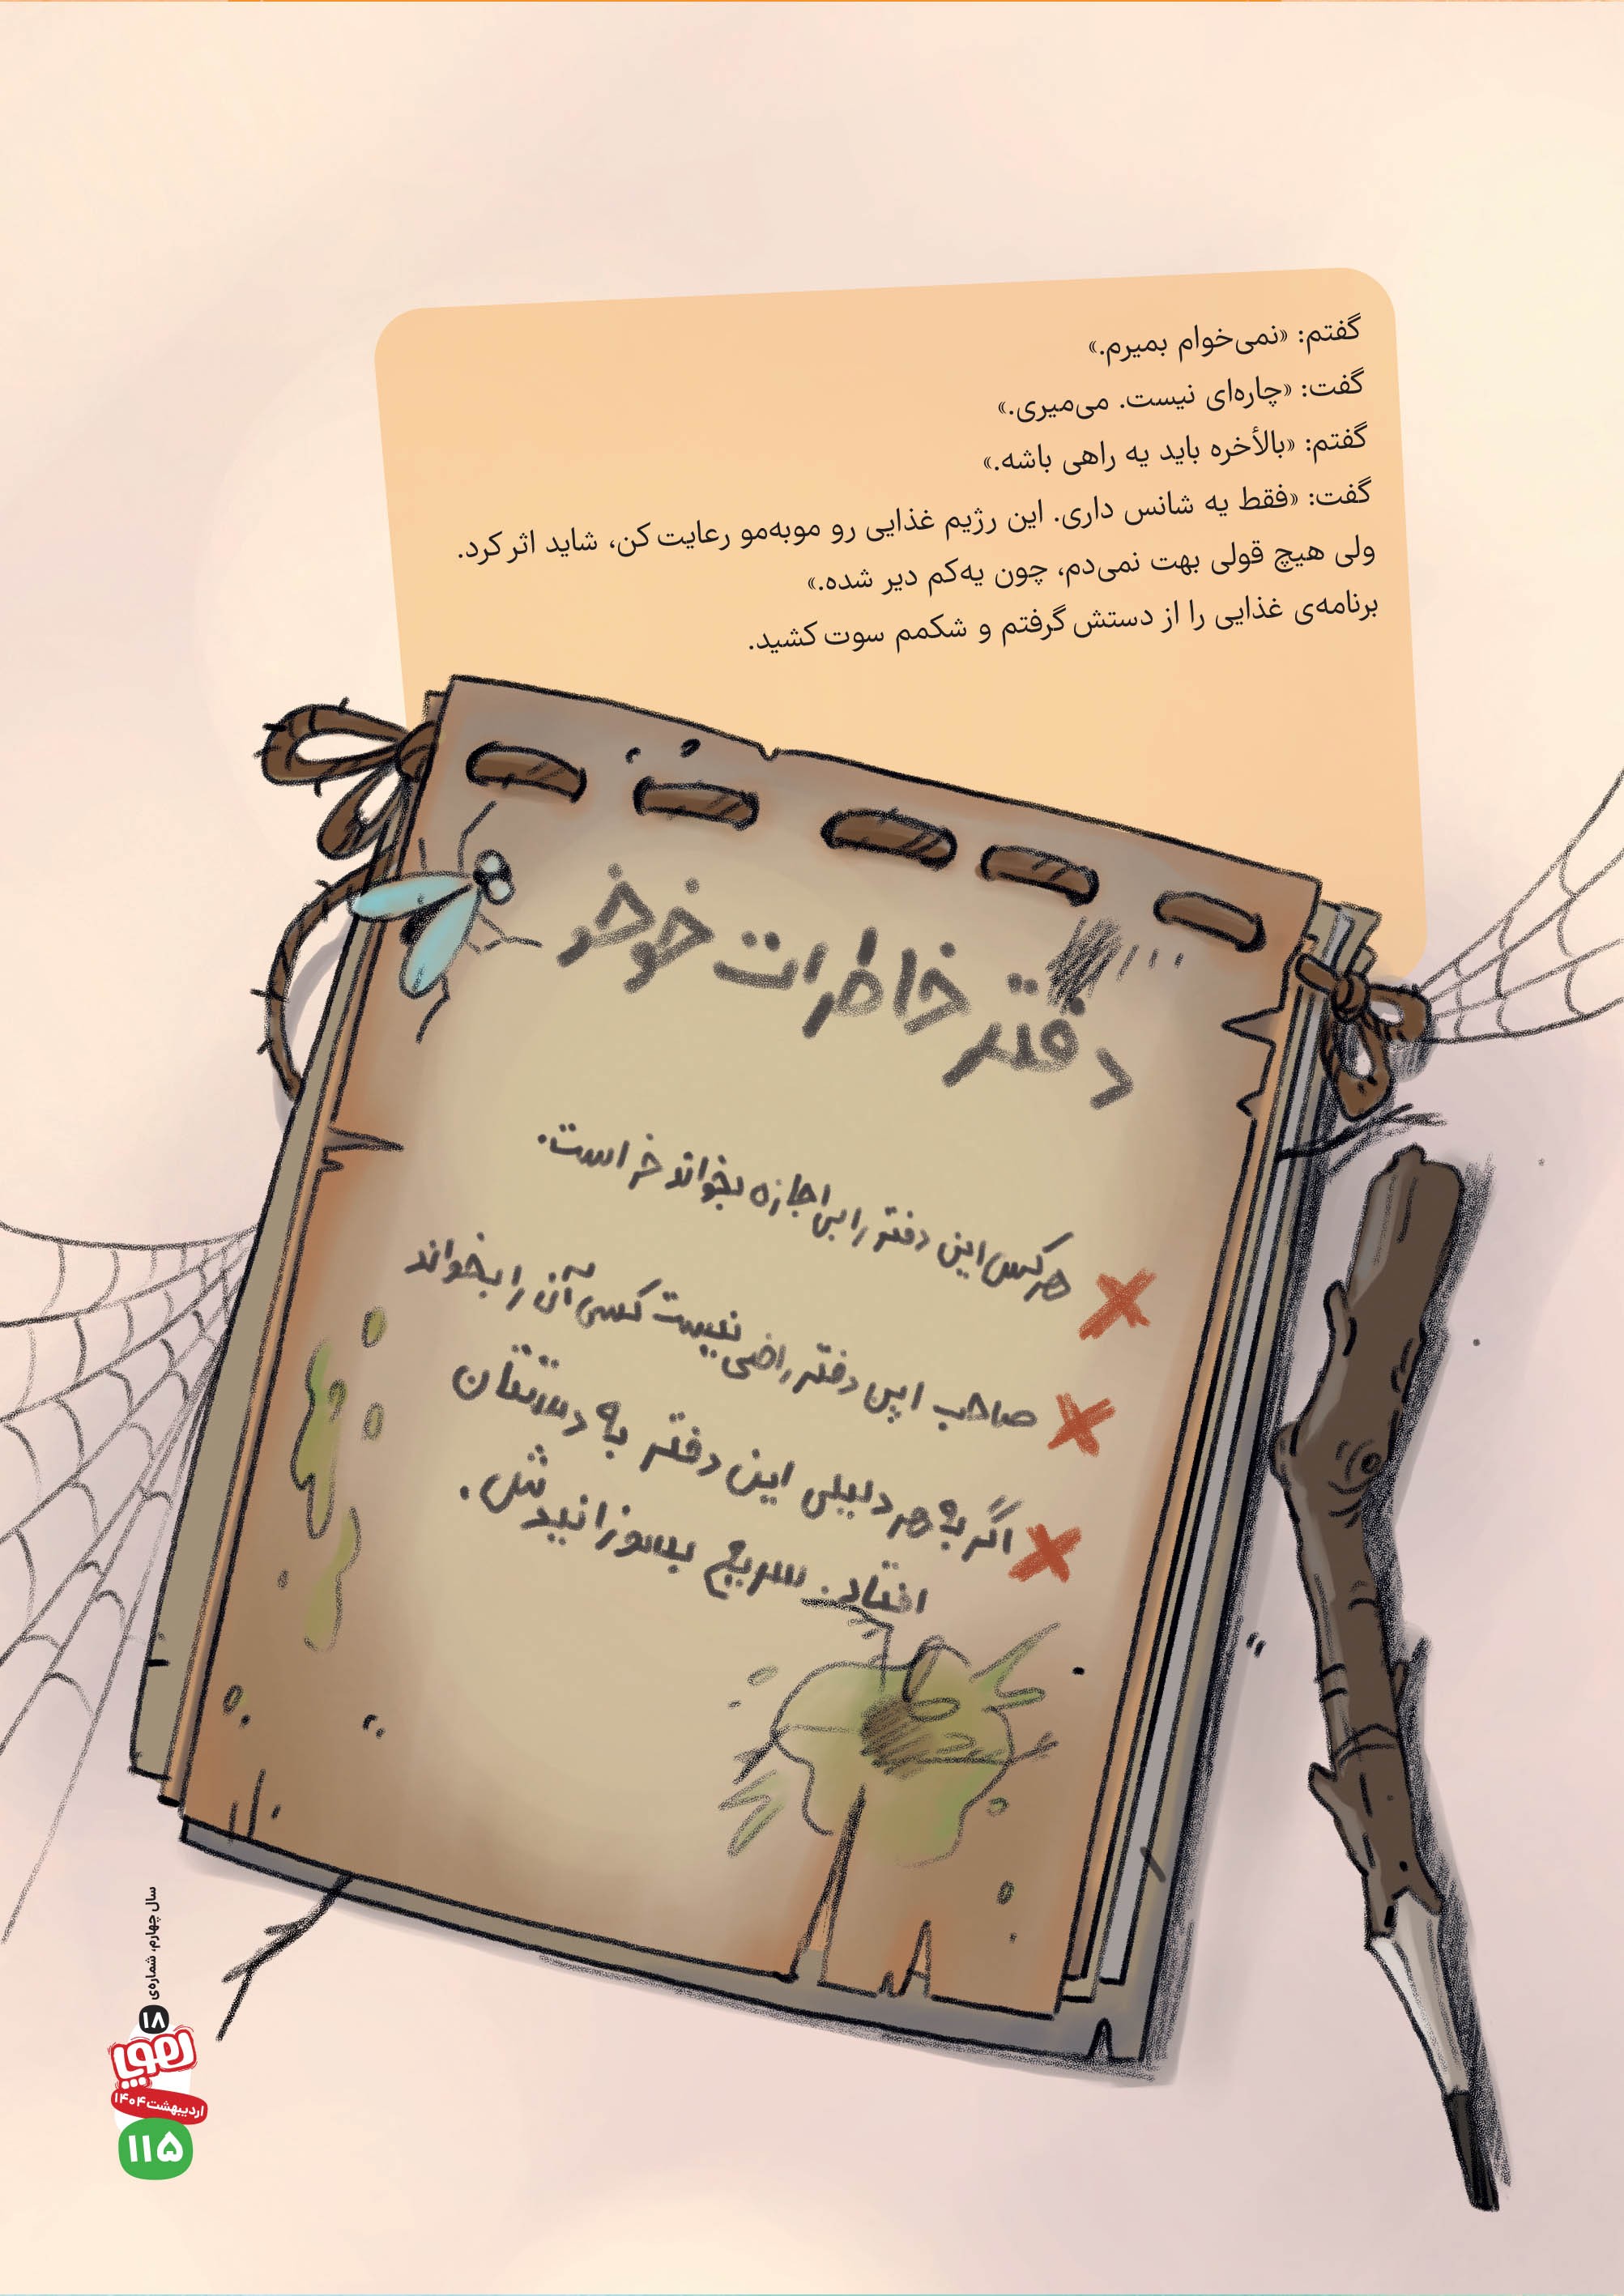 گفتم: «نمی‌خوام بمیرم.»
گفت: «چاره‌ای نیست. می‌میری.»
گفتم: «بالأخره باید یه راهی باشه.»
گفت: «فقط یه شانس داری. این رژیم غذایی رو موبه‌مو رعایت کن، شاید اثر کرد.
ولی هیچ قولی بهت نمی‌دم، چون یه‌کم دیر شده.»
برنامه‌ی غذایی را از دستش گرفتم و شکمم سوت کشید.
دفتر خاطرات خوخو
هرکس این دفتر را بی اجازه بخواند خر است.
صاحب این دفتر راضی نیست کسی آن را بخواند
اگر به هر دلیلی این دفتر به دستتان
افتاد، سریع بسوزانیدش.
سال چهارم، شماره‌ی
۱۸
اردیبهشت ۱۴۰۴
۱۱۵